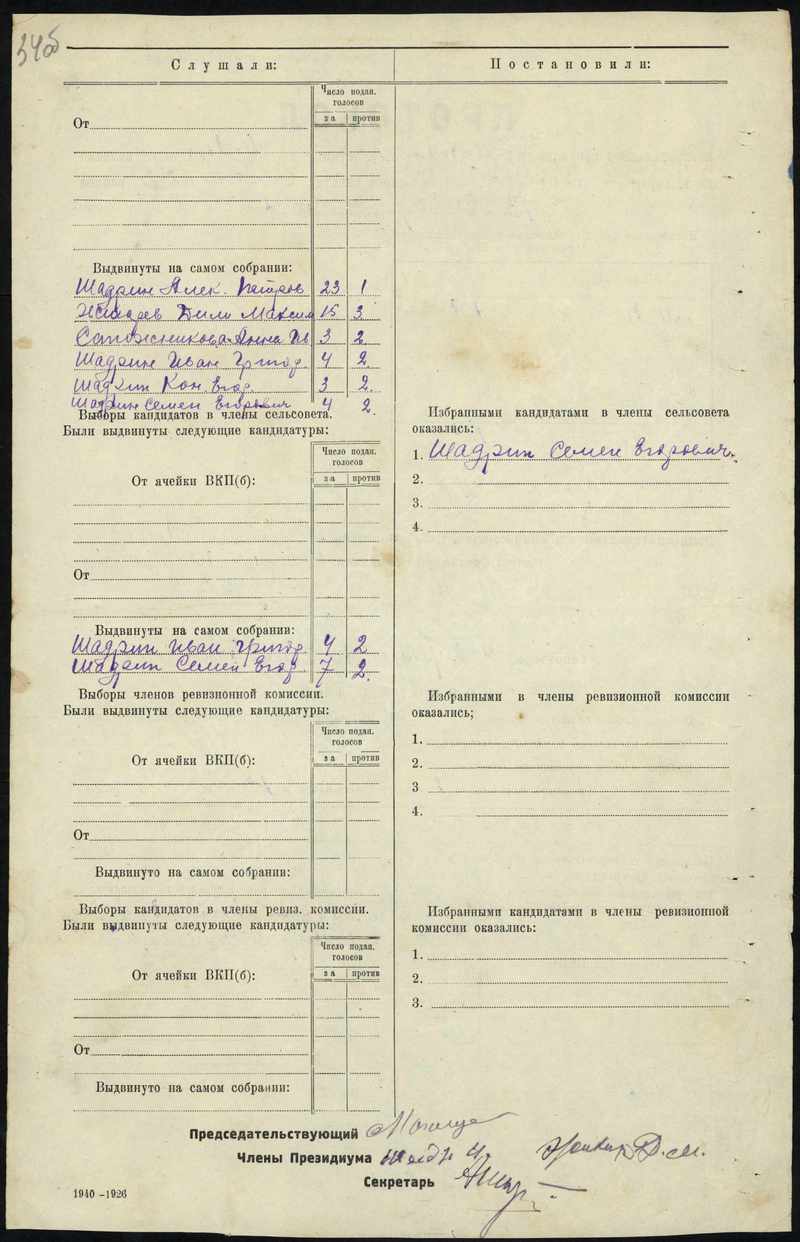 Слушали:
Постановили:
Число подан. голосов
за против
От
Выдвинуты на самом собрании:
Шадрин Алек. Петров 23 1
Дани Максим 15 3
Сапожникова Анна Ив 3 2
Шадрин Иван Григор. 4 2
Шадрин Кон. Егор. 3 2.
Шадрин Семен Егорович 4 2.
Выборы кандидатов в члены сельсовета.
Были выдвинуты следующие кандидатуры:
Число подан. голосов
за против
От ячейки ВКП(б):
От
Выдвинуты на самом собрании:
Шадрин Иван Григор. 4 2
Шадрин Семен Егор. 7 2.
Избранными кандидатами в члены сельсовета
оказались:
1. Шадрин Семен Егорович.
2.
3.
4.
Выборы членов ревизионной комиссии.
Были выдвинуты следующие кандидатуры:
Число подан. голосов
за против
От ячейки ВКП(б):
От
Выдвинуто на самом собрании:
Избранными в члены ревизионной комиссии
оказались;
1.
2.
3
4.
Выборы кандидатов в члены ревиз. комиссии.
Были выдвинуты следующие кандидатуры:
Число подан. голосов
за против
От ячейки ВКП(б):
От
Выдвинуто на самом собрании:
Избранными кандидатами в члены ревизионной
комиссии оказались:
1.
2.
3.
Председательствующий
Члены Президиума
Секретарь
1940 –1926